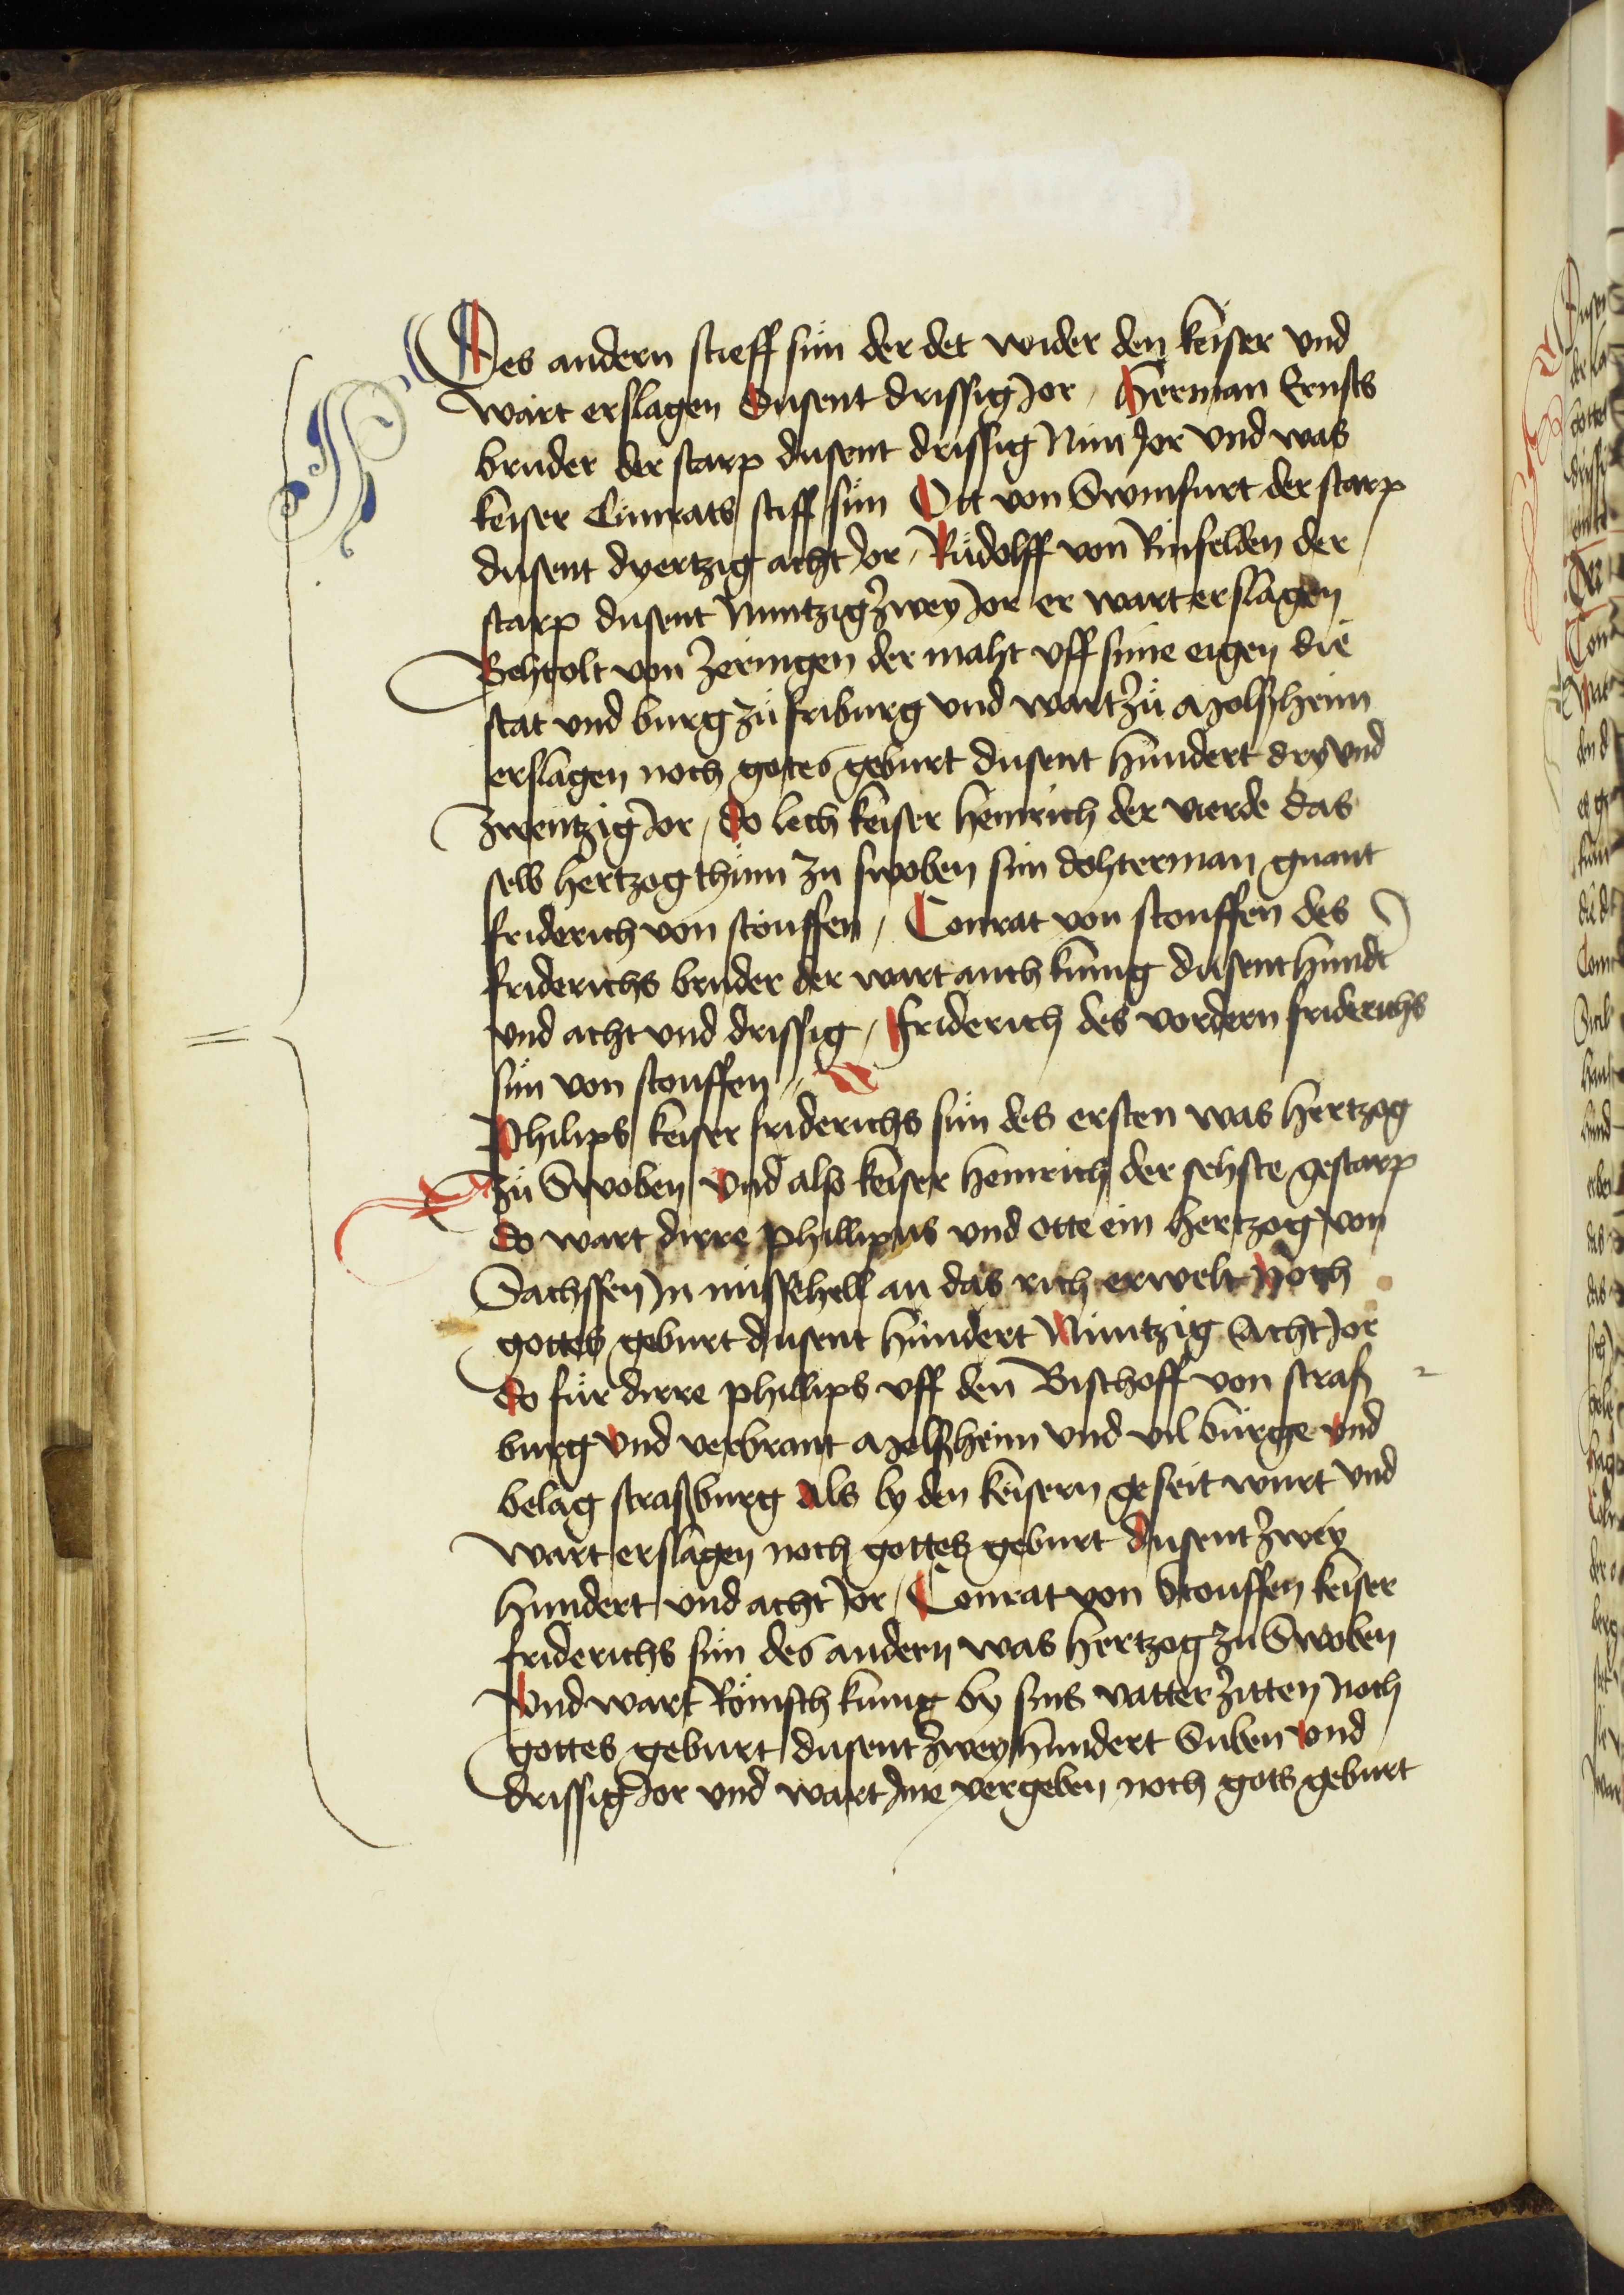 Des andern stieff sün der det wider den keiser vnd
wart erslagen dusent drissig Jor / Herman Ernsts
bruder der starp dusent drissig Nün Jor vnd was
keiser Cünrats stiff sün Ott von Swinfurt der starp
dusent vyertzig acht Jor / Rüdolff von Rinfelden der
starp dusent Nüntzig zwey Jor er wart erslagen
Behtolt von Zeringen der maht vff sine eigen die
stat vnd burg zü friburg vnd wart zü Molßheim
erslagen noch gotes geburt dusent hundert dry vnd
zwentzig Jor / do lech keiser heinrich der vierde das
selb hertzogthüm zu swoben sim dohterman gnant
friderich von stouffen / Conrat von stouffen des
friderichs bruder der wart auch kunig dusent hundt
vnd acht vnd drissig / friderich des vordern friderichs
sün von stouffen //
Philips keiser friderichs sün des ersten was hertzog
zü Swoben vnd also keiser heinrich der sehste gestarp
do wart dirre phillippus vnd otte ein hertzog von
Sachssen Jn missehell an das rich erwelt Noch
gottes geburt dusent hundert Nüntzig Acht Jor
do für dirre phillips vff den Bischoff von straß
burg vnd verbrant Molßheim vnd vil bürge vnd
belag straßburg als by den keisern geseit wurt vnd
wart erslagen noch gottes geburt dusent zwey
hundert vnd acht Jor / Conrat von Stouffen keiser
friderichs sün des andern was hertzog zu Swoben
Vnd wart Römsch kunig by sins vatter zitten Noch
gottes geburt dusent zwey hundert Suben vnd
drissig Jor vnd wart Jme vergeben noch gots geburt